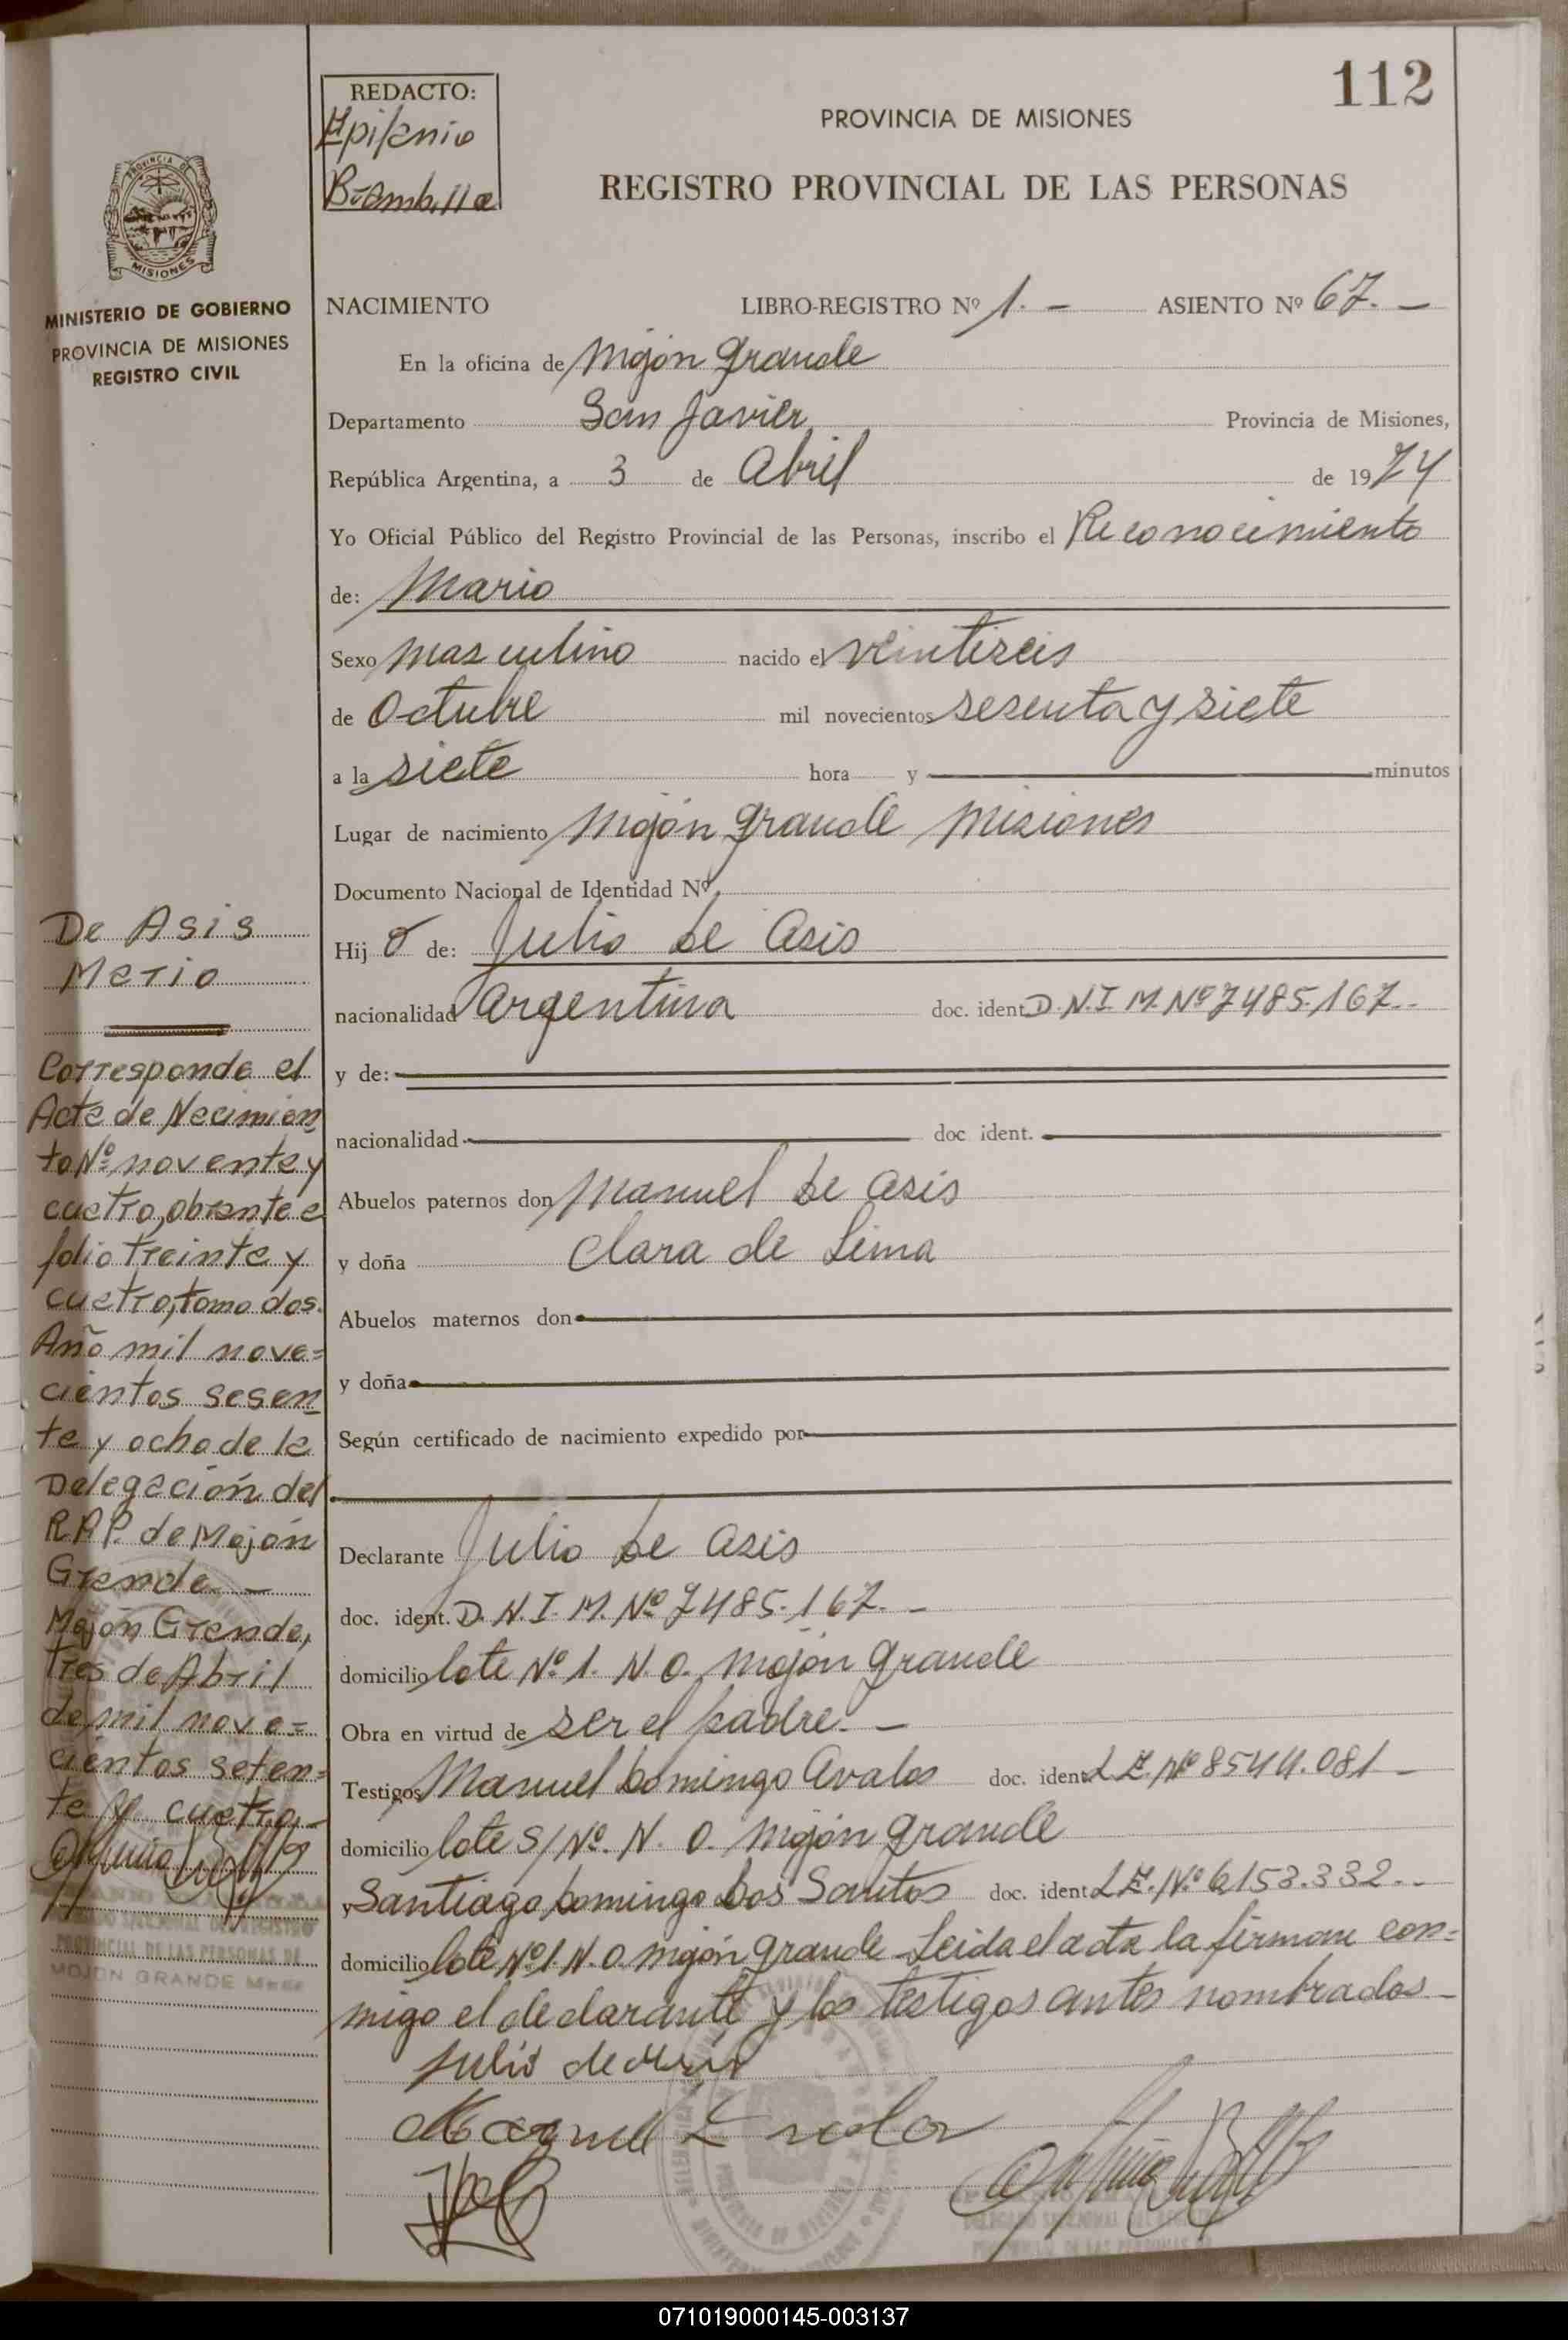 112
REDACTO:
Epifanio
Brambilla
PROVINCIA DE MISIONES
REGISTRO PROVINCIAL DE LAS PERSONAS
PROVINCIA DE
MISIONES
MINISTERIO DE GOBIERNO
PROVINCIA DE MISIONES
REGISTRO CIVIL
NACIMIENTO LIBRO-REGISTRO Nº 1. - ASIENTO Nº 67. -
En la oficina de Mojón Grande
Departamento San Javier Provincia de Misiones,
República Argentina, a 3 de Abril de 1974
Yo Oficial Público del Registro Provincial de las Personas, inscribo el Reconocimiento
de: Mario
Sexo masculino nacido el veintiseis
de Octubre mil novecientos sesenta y siete
a la siete hora y minutos
Lugar de nacimiento Mojón Grande Misiones
Documento Nacional de Identidad Nº
Hijo de: Julio de Asis
nacionalidad Argentina doc. ident. D.N.I.M. Nº 7485.167.-
y de:
nacionalidad doc ident.
Abuelos paternos don Manuel de Asis
y doña Clara de Lima
Abuelos maternos don
y doña
Según certificado de nacimiento expedido por
Declarante Julio de Asis
doc. ident. D.N.I.M. Nº 7485.167. -
domicilio lote Nº 1. N. O. Mojón Grande
Obra en virtud de ser el padre. -
Testigos Manuel Domingo Avalos doc. ident. L.E. Nº 8544.081 -
domicilio lote S/Nº. N. O. Mojón Grande
y Santiago Domingo Dos Santos doc. ident. L.E. Nº 6153.332.-
domicilio lote Nº 1. N. O. Mojón Grande - Leida el acta la firman con=
migo el declarante y los testigos antes nombrados -
Julio de Asis
De Asis
Mario
Corresponde al
Acta de Nacimien
to Nº noventa y
cuatro, obrante a
folio treinta y
cuatro, tomo dos.
Año mil nove=
cientos sesen
ta y ocho de la
Delegación del
R.P.P. de Mojón
Grande. -
Mojón Grande,
tres de Abril
de mil nove=
cientos seten=
ta y cuatro. -
PROVINCIAL DE LAS PERSONAS DE
MOJON GRANDE
071019000145-003137